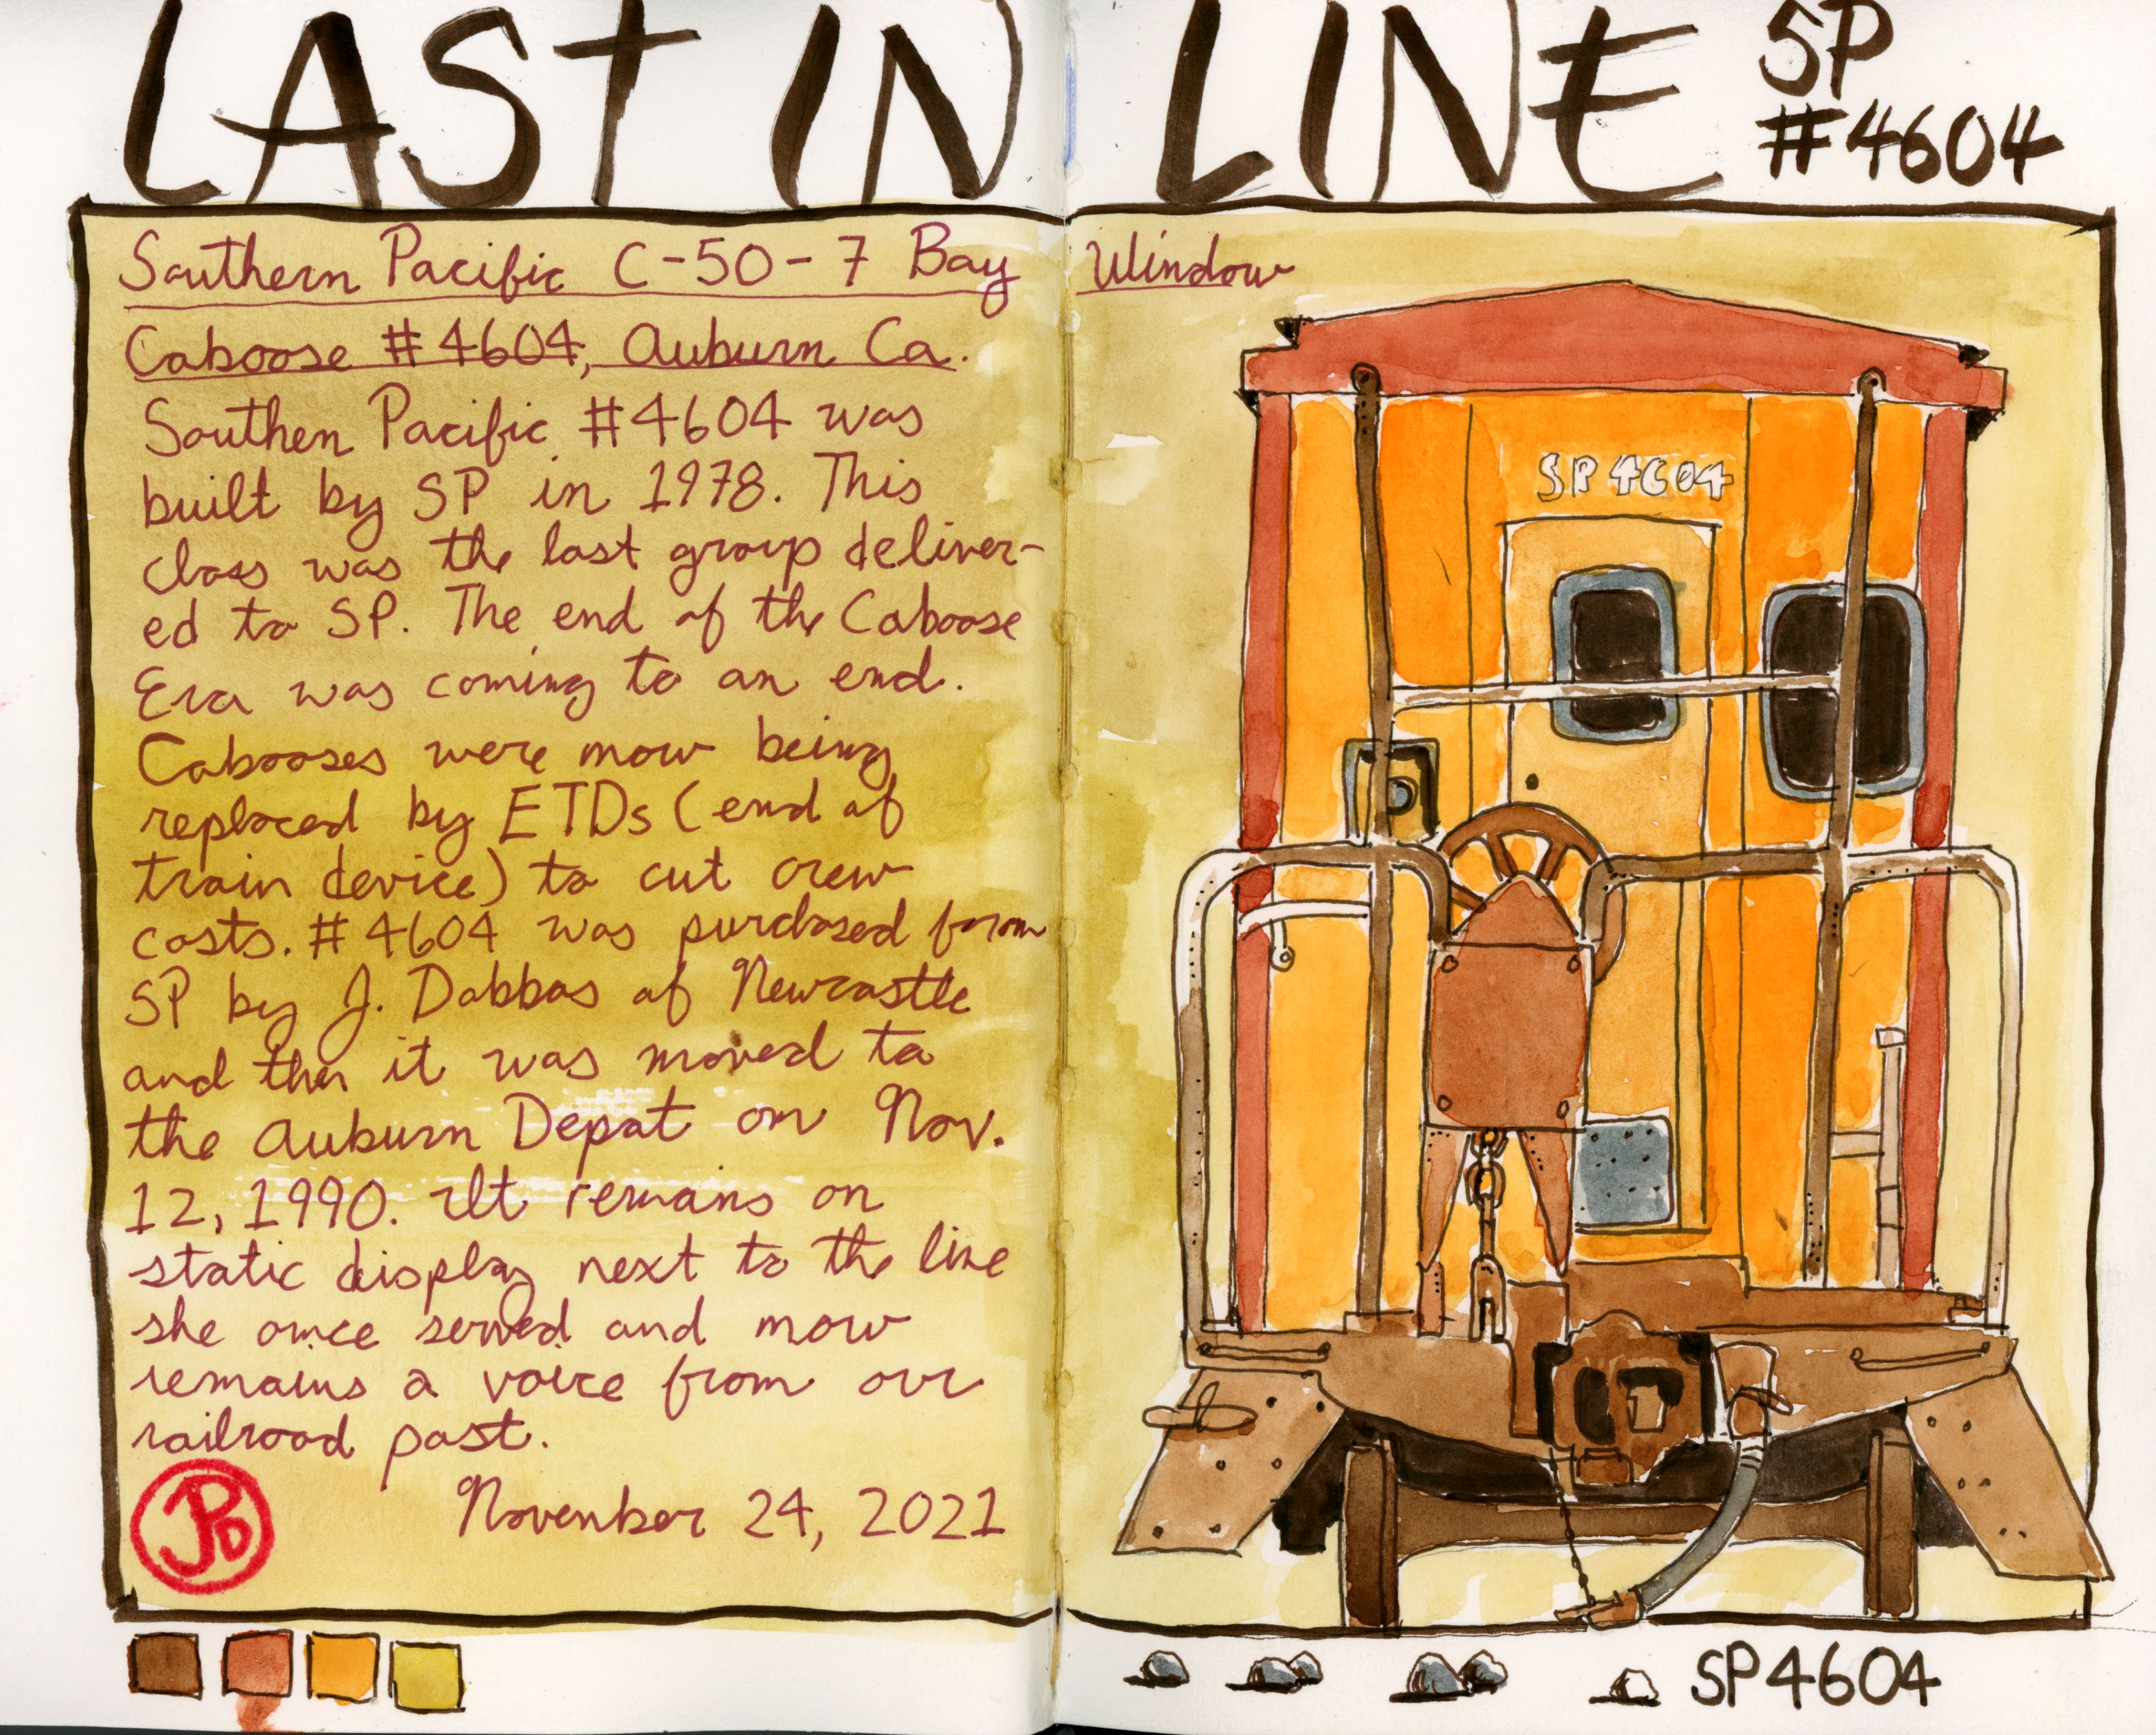 LAST IN LINE SP
#4604
Southern Pacific C-50-7 Bay Window
Caboose #4604, Auburn Ca.
Southen Pacific #4604 was
built by SP in 1978. This
class was the last group deliver-
ed to SP. The end of the Caboose
Era was coming to an end.
Cabooses were now being
replaced by ETDs (end of
train device) to cut crew
costs. #4604 was purchased from
SP by J. Dabbas of Newcastle
and then it was moved to
the Auburn Depot on Nov.
12, 1990. It remains on
static display next to the line
she once served and now
remains a voice from our
railroad past.
November 24, 2021
JPD
SP 4604
SP4604